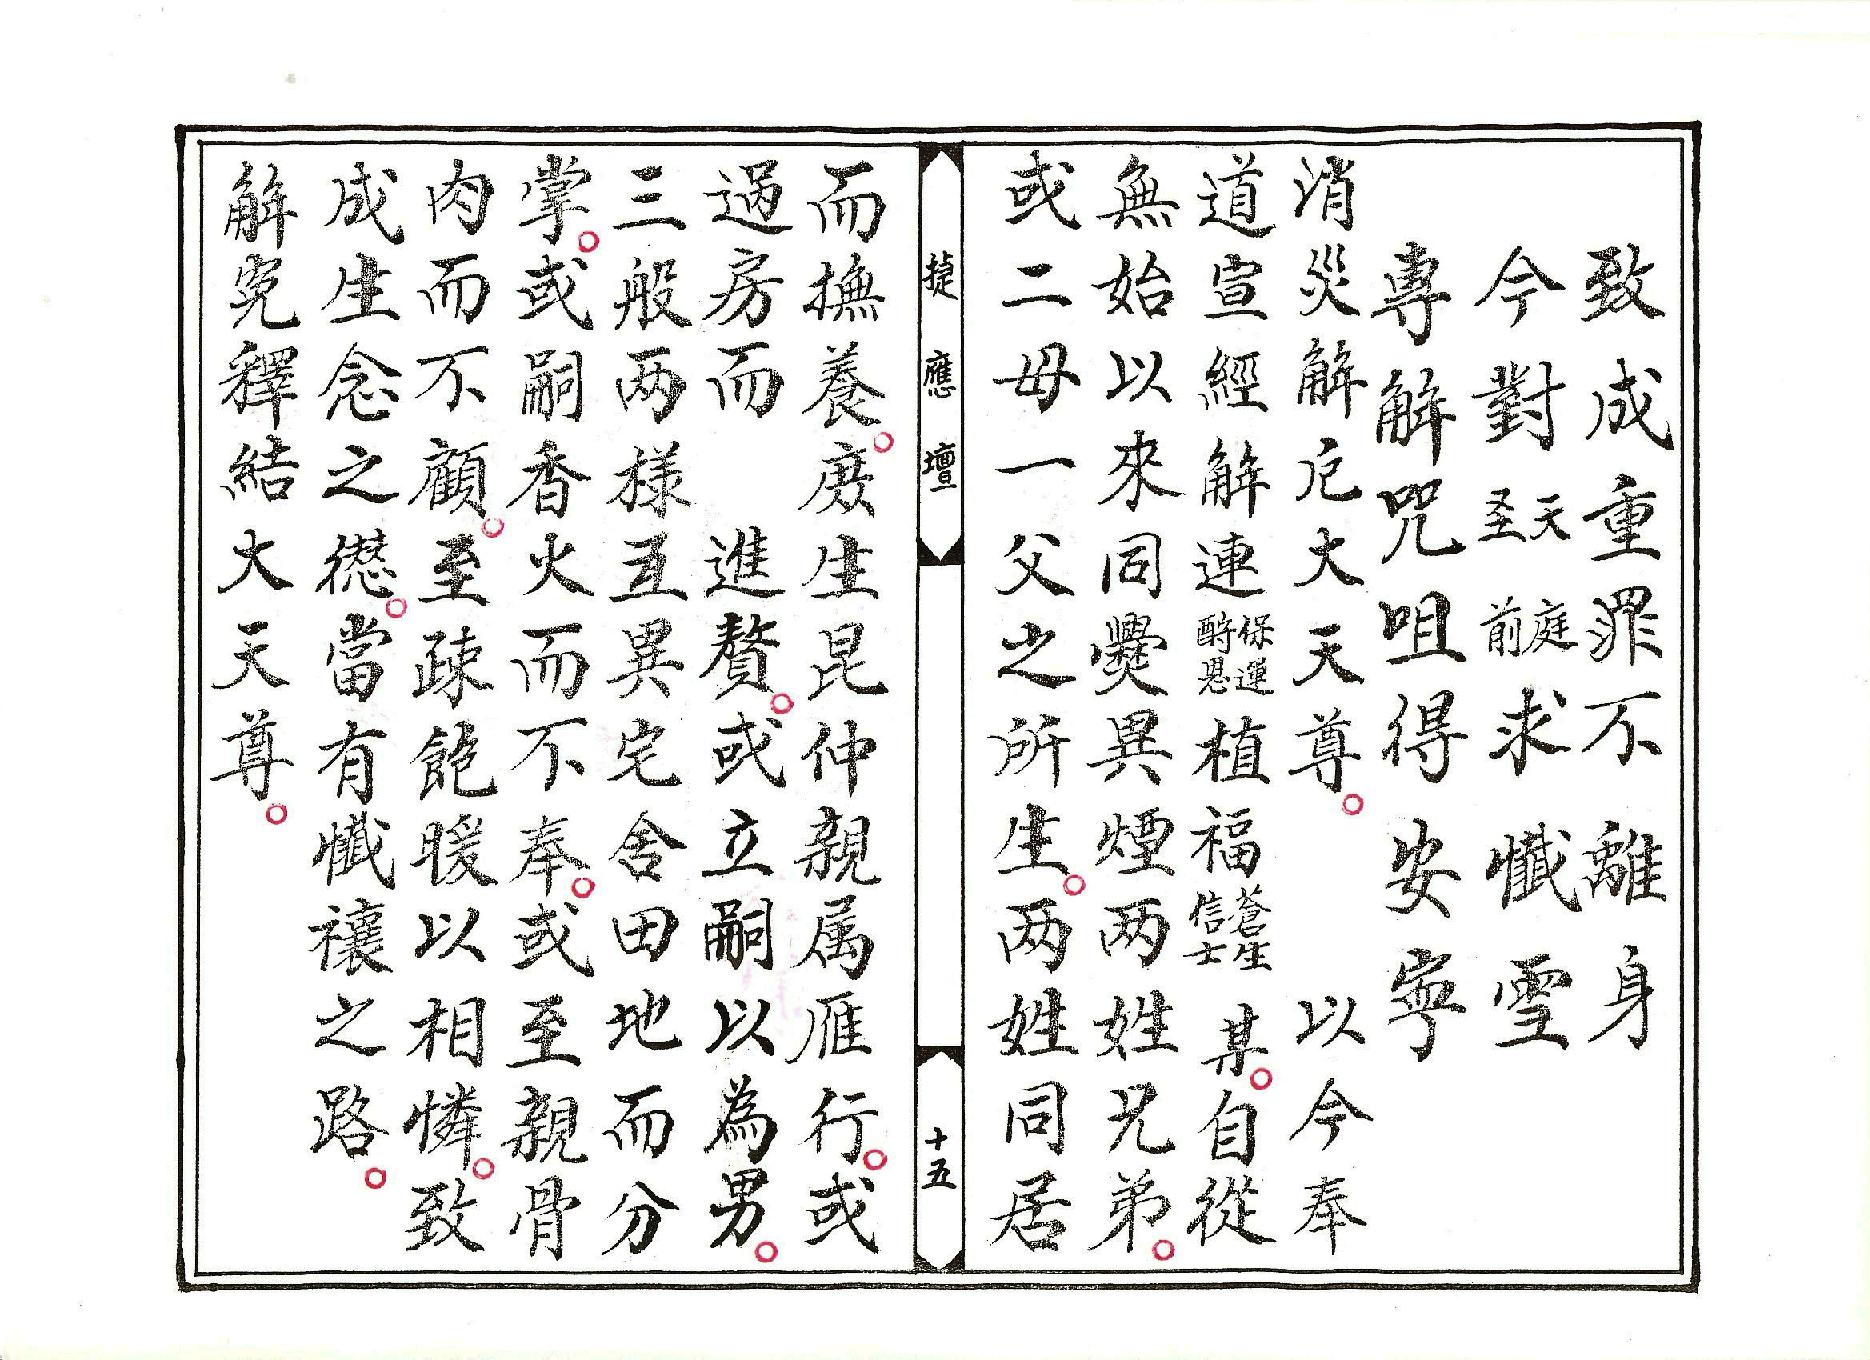 致成重罪不離身
今對天庭圣前求懺雪
專觧咒咀得安寧
消災觧厄大天尊。 以今奉
道宣經觧連保運酧恩植福蒼生信士某。自從
無始以來同爨異煙两姓兄弟。
或二母一父之所生。两姓同居
㨗應壇
十五
而撫養。庶生昆仲親属雁行。或
過房而 進贅。或立嗣以為男。
三般两樣互異宅舍田地而分
掌。或嗣香火而不奉。或至親骨
肉而不顧。至疎飽暖以相憐。致
成生念之愆。當有懺禳之路。
觧冤釋結大天尊。